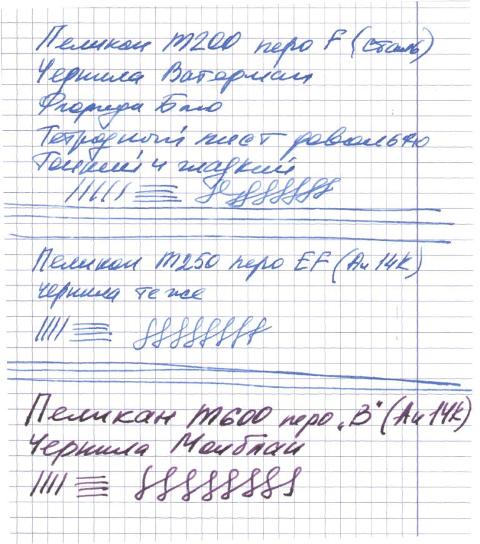 Пеликан M200 перо F (сталь)
Чернила Ватерман
Флорида Блю
Тетрадный лист довольно
тонкий и гладкий
Пеликан M250 перо EF (Au 14K)
чернила те же
Пеликан M600 перо „B" (Au 14K)
Чернила Монблан